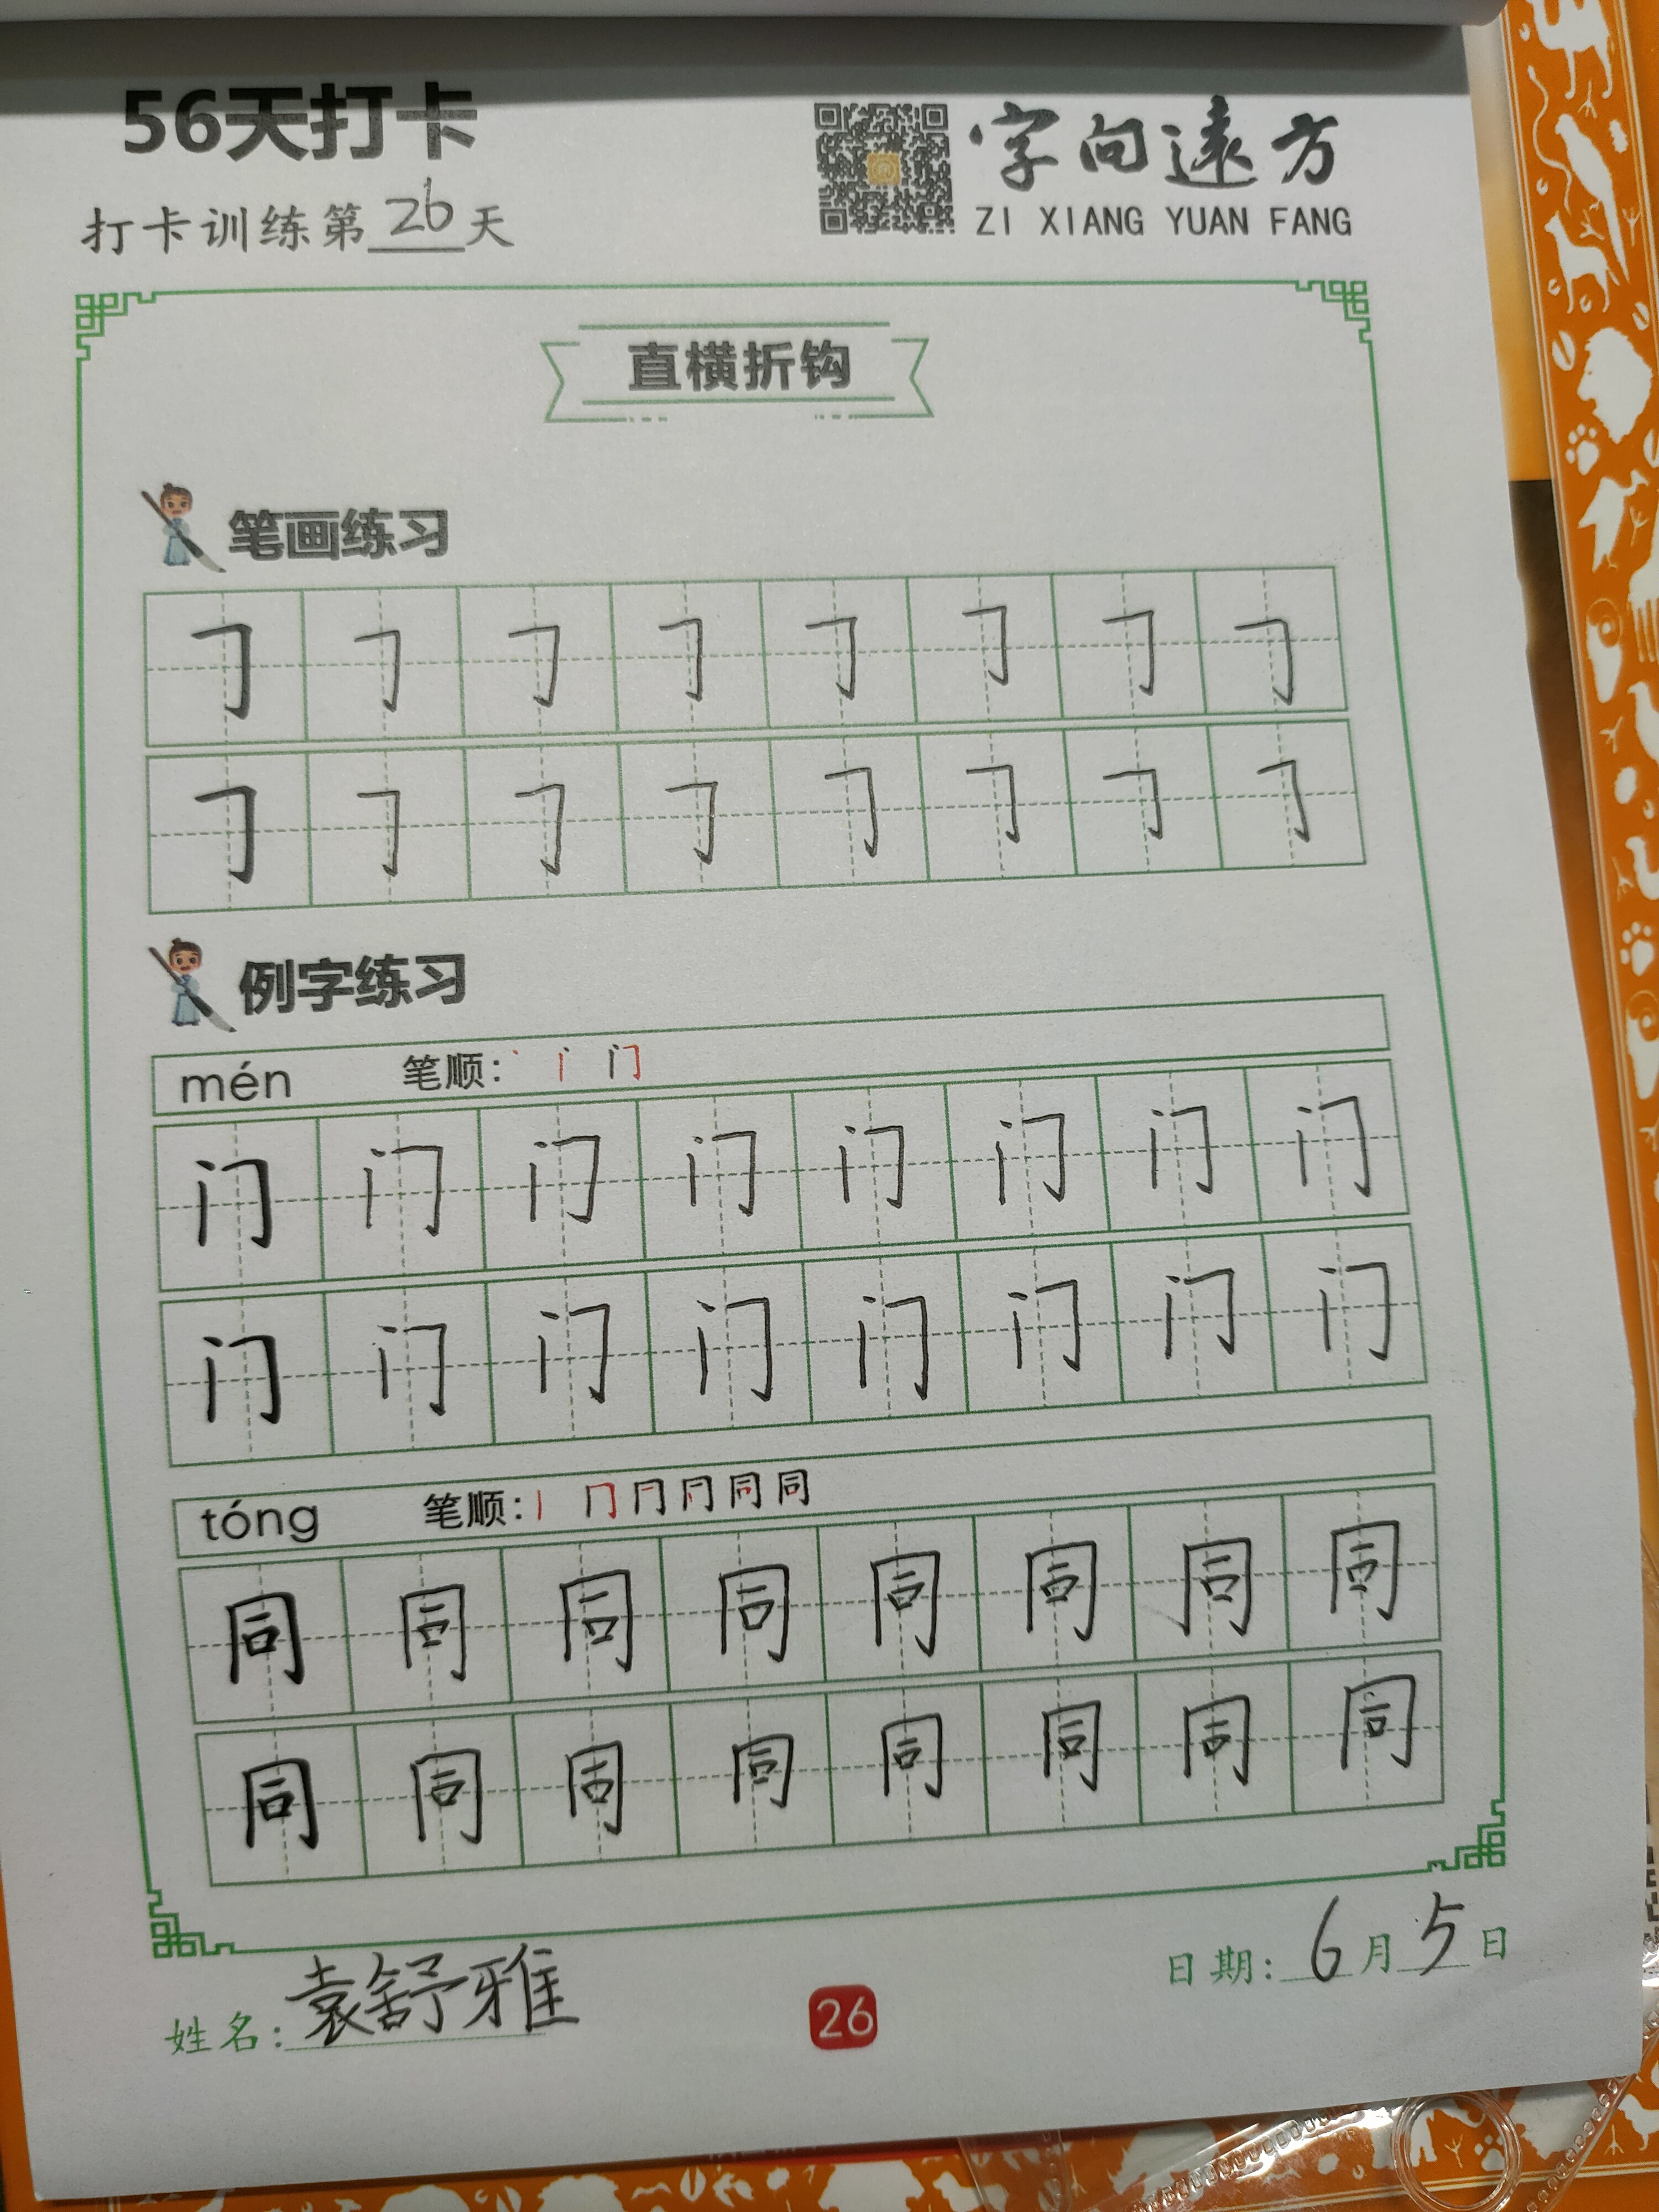 56天打卡
字向遠方
打卡训练第26天
ZI XIANG YUAN FANG
直横折钩
笔画练习
㇆ ㇆ ㇆ ㇆ ㇆ ㇆ ㇆ ㇆
㇆ ㇆ ㇆ ㇆ ㇆ ㇆ ㇆ ㇆
例字练习
mén 笔顺: 丶 丨 门
门 门 门 门 门 门 门 门
门 门 门 门 门 门 门 门
tóng 笔顺: 丨 冂 同 同
同 同 同 同 同 同 同 同
同 同 同 同 同 同 同 同
姓名: 袁舒雅
26
日期: 6月5日